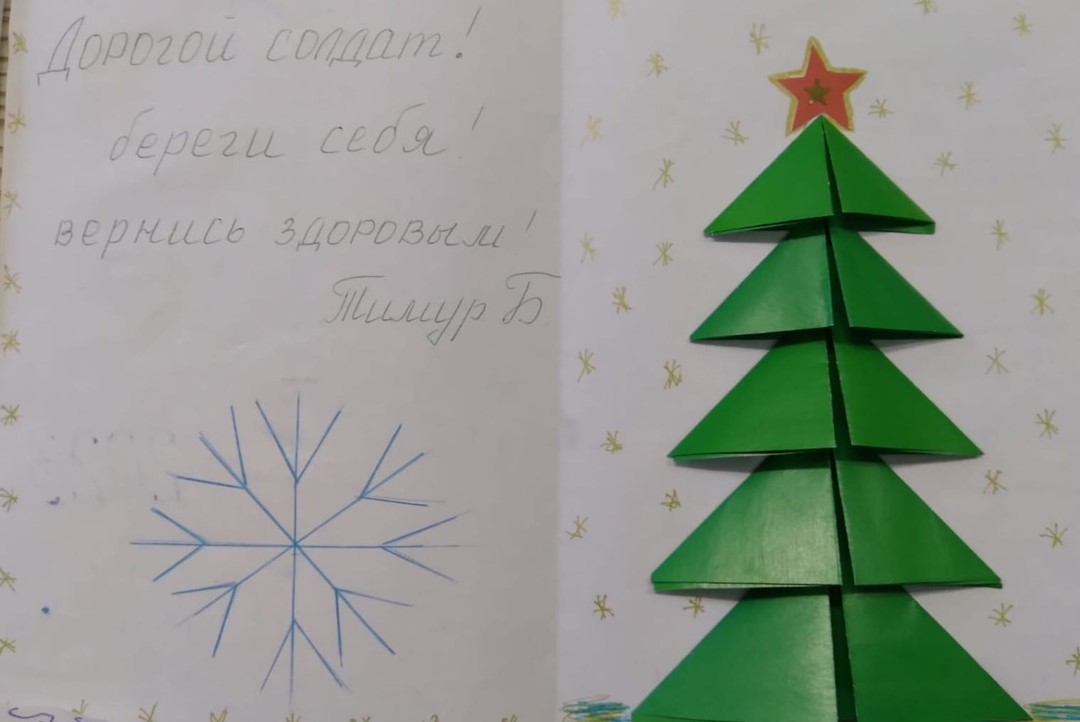 Дорогой солдат!
береги себя!
вернись здоровым!
Тимур Б.